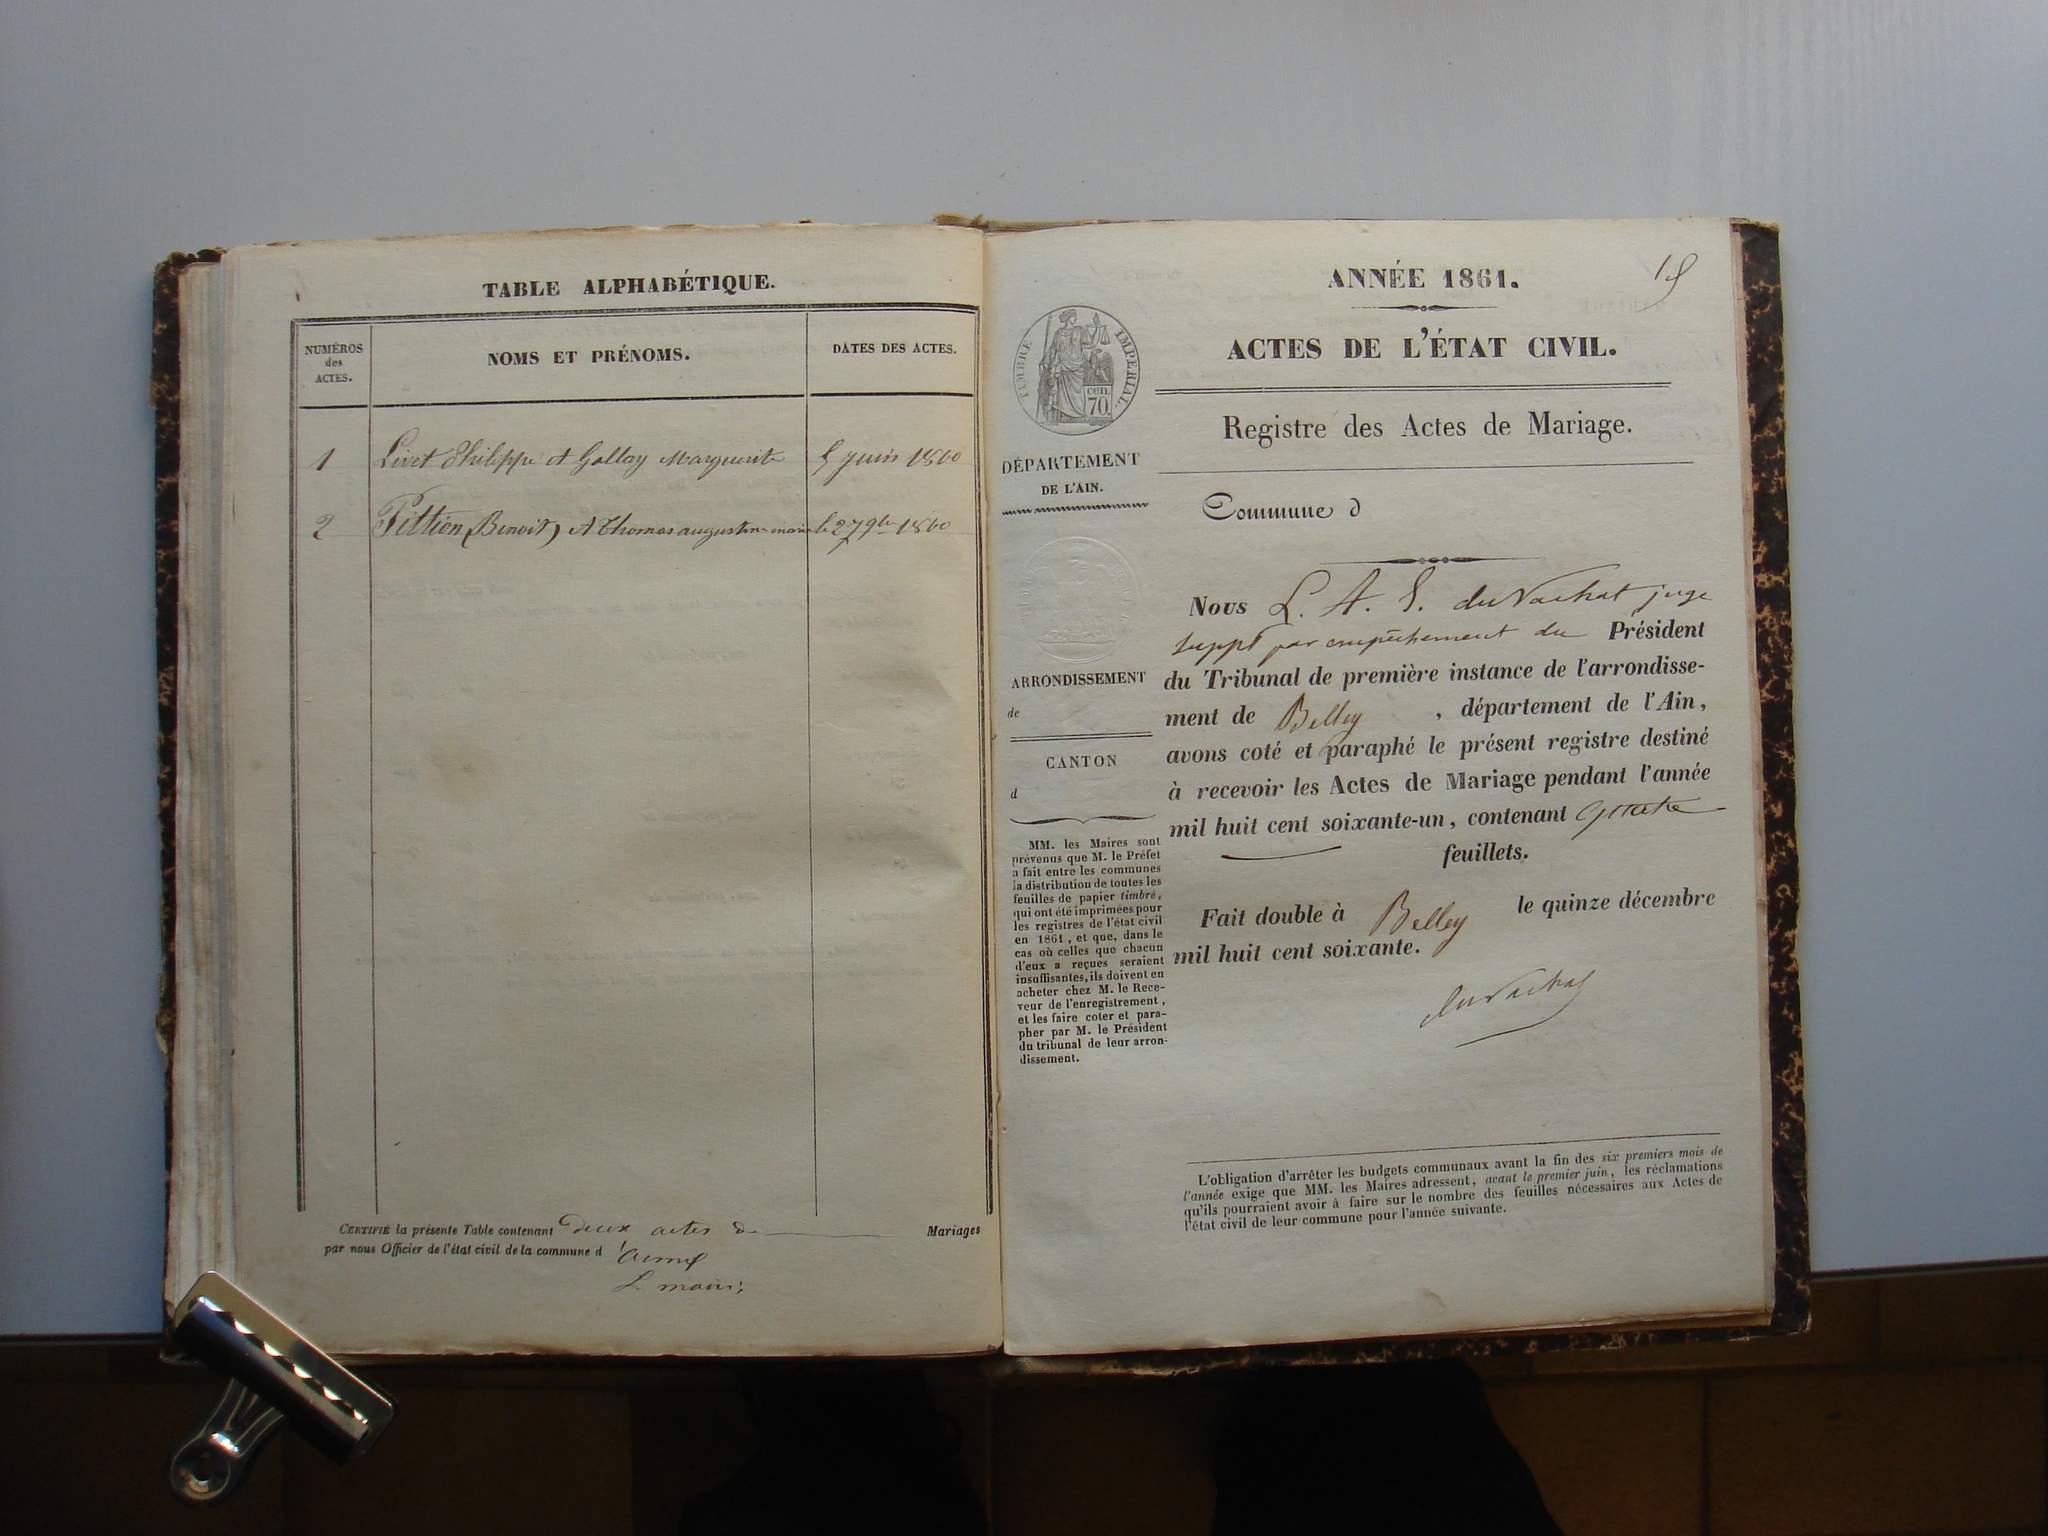 TABLE ALPHABÉTIQUE.
NUMÉROS
des
ACTES.
NOMS ET PRÉNOMS.
DATES DES ACTES.
1 Livet Philippe et Gallay Marguerite 5 juin 1860
2 Pittion (Benoit) et Thomas augustine marie le 27 9bre 1860
CERTIFIÉ la présente Table contenant deux actes de Mariages
par nous Officier de l'état civil de la commune d
le maire
ANNÉE 1861.
ACTES DE L'ÉTAT CIVIL.
TIMBRE IMPÉRIAL.
cen.
70.
Registre des Actes de Mariage.
DÉPARTEMENT
DE L'AIN.
Commune d
ARRONDISSEMENT
de
CANTON
d
MM. les Maires sont
prévenus que M. le Préfet
a fait entre les communes
la distribution de toutes les
feuilles de papier timbré,
qui ont été imprimées pour
les registres de l'état civil
en 1861, et que, dans le
cas où celles que chacun
d'eux a reçues seraient
insuffisantes, ils doivent en
acheter chez M. le Rece-
veur de l'enregistrement,
et les faire coter et para-
pher par M. le Président
du tribunal de leur arron-
dissement.
Nous L. A. S. du Vachat juge
suppt par empêchement du Président
du Tribunal de première instance de l'arrondisse-
ment de Belley, département de l'Ain,
avons coté et paraphé le présent registre destiné
à recevoir les Actes de Mariage pendant l'année
mil huit cent soixante-un, contenant quatre
feuillets.
Fait double à Belley le quinze décembre
mil huit cent soixante.
du Vachat
L'obligation d'arrêter les budgets communaux avant la fin des six premiers mois de
l'année exige que MM. les Maires adressent, avant le premier juin, les réclamations
qu'ils pourraient avoir à faire sur le nombre des feuilles nécessaires aux Actes de
l'état civil de leur commune pour l'année suivante.